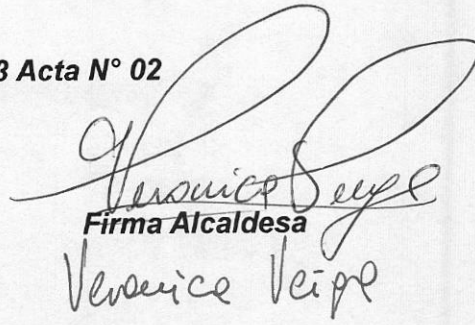 3 Acta N° 02
Veronica Veiga
Firma Alcaldesa
Veronica Veiga